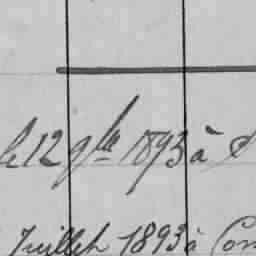 le 12 9bre 1893 à
Juillet 1893 à Con